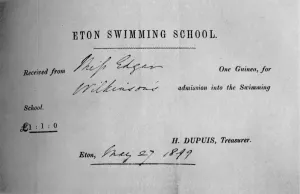 ETON SWIMMING SCHOOL.
Received from Miss Edgar One Guinea, for
Wilkinson's admission into the Swimming
School.
£1 : 1 : 0
H. DUPUIS, Treasurer.
Eton, May 27 1849